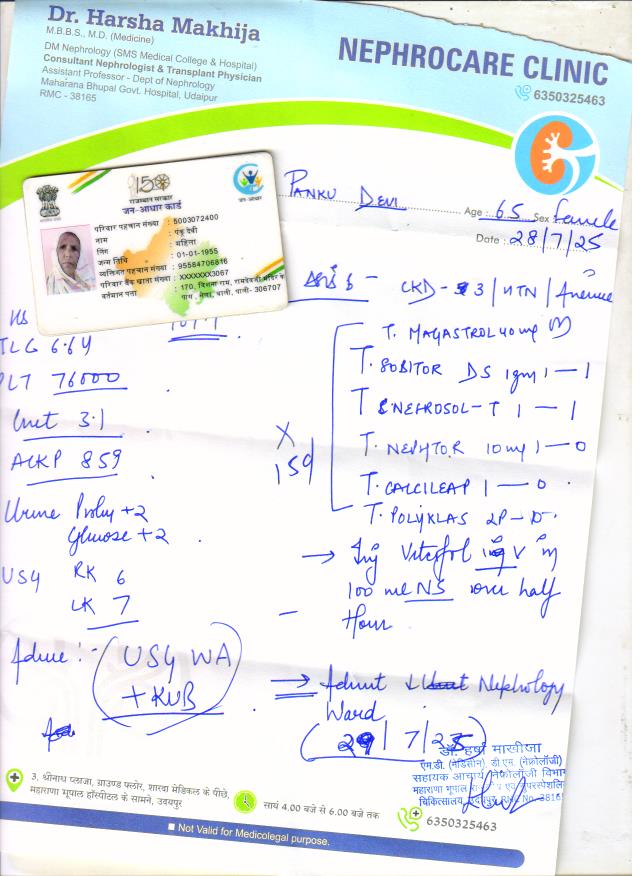 Dr. Harsha Makhija
M.B.B.S., M.D. (Medicine)
DM Nephrology (SMS Medical College & Hospital)
Consultant Nephrologist & Transplant Physician
Assistant Professor - Dept of Nephrology
Maharana Bhupal Govt. Hospital, Udaipur
RMC - 38165
NEPHROCARE CLINIC
6350325463
राजस्थान सरकार
जन-आधार कार्ड
जन-आधार
परिवार पहचान संख्या : 5003072400
नाम : पंकु देवी
लिंग : महिला
जन्म तिथि : 01-01-1955
व्यक्तिगत पहचान संख्या : 95584706816
परिवार बैंक खाता संख्या : XXXXXXX3067
वर्तमान पता : 170,
पाली- 306707
PANKU DEVI
Age : 65 Sex Female
Date : 28/7/25
CKD- 3 / HTN /
TLC 6.64
PLT 76000
Creat 3.1
ALKP 859
Urine +2
Glucose +2
USG RK 6
LK 7
Advice :-
USG WA
+ KUB
X
15d
T. 40 mg
T. SOBITOR DS 1gm 1 — 1
T NEFROSOL-T 1 — 1
T. 10 mg 1 — 0
T. CALCILEAP 1 — 0
T. POLYKLAS
→ Inj
100 ml NS over half
Hour
→ Admit Nephrology
Ward
(29/7/25)
डॉ. हर्षा माखीजा
एम.डी. (मेडिसीन), डी एम. (नेफ्रोलॉजी)
सहायक आचार्य नेफ्रोलॉजी विभाग
महाराणा भूपाल
चिकित्सालय
3, श्रीनाथ प्लाजा, ग्राउण्ड फ्लोर, शारदा मेडिकल के पीछे,
महाराणा भूपाल हॉस्पीटल के सामने, उदयपुर
सायं 4.00 बजे से 6.00 बजे तक
6350325463
Not Valid for Medicolegal purpose.